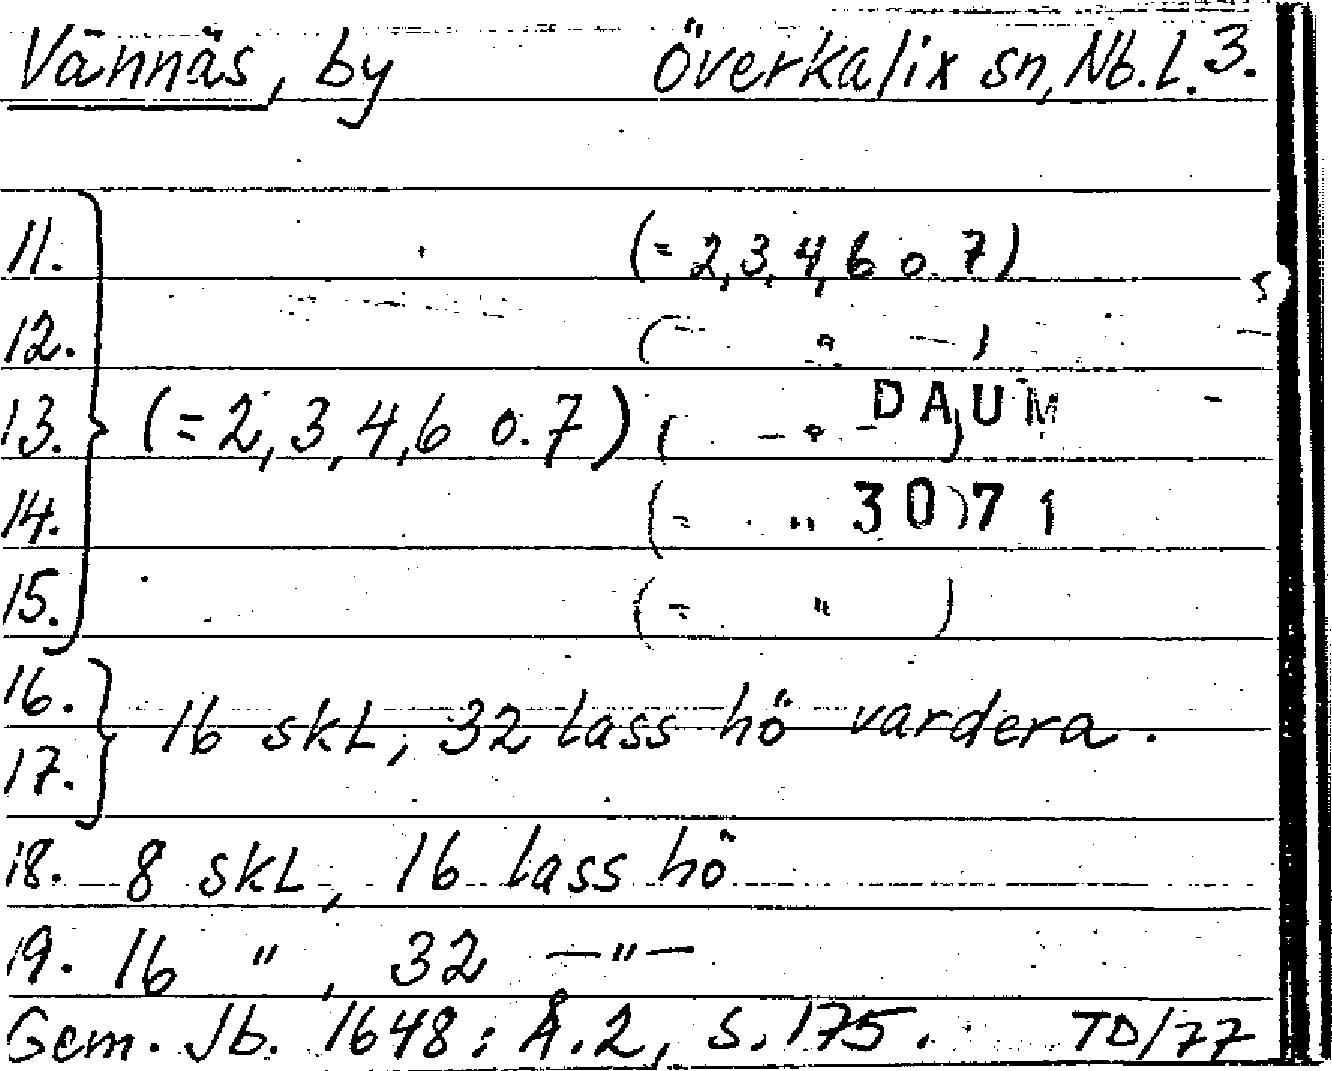 Vännäs, by Överkalix sn, Nb. l. 3.
11. (= 2, 3, 4, 6 o. 7)
12. (- " -)
13. (= 2, 3, 4, 6 o. 7) ( - " - ) DAUM
14. (= " ) 3071
15. (= " )
16.
16 skl, 32 lass hö vardera.
17.
18. 8 skl, 16 lass hö
19. 16 " , 32 —"—
Gem. Jb. 1648: Å. 2, s. 175. TD/77